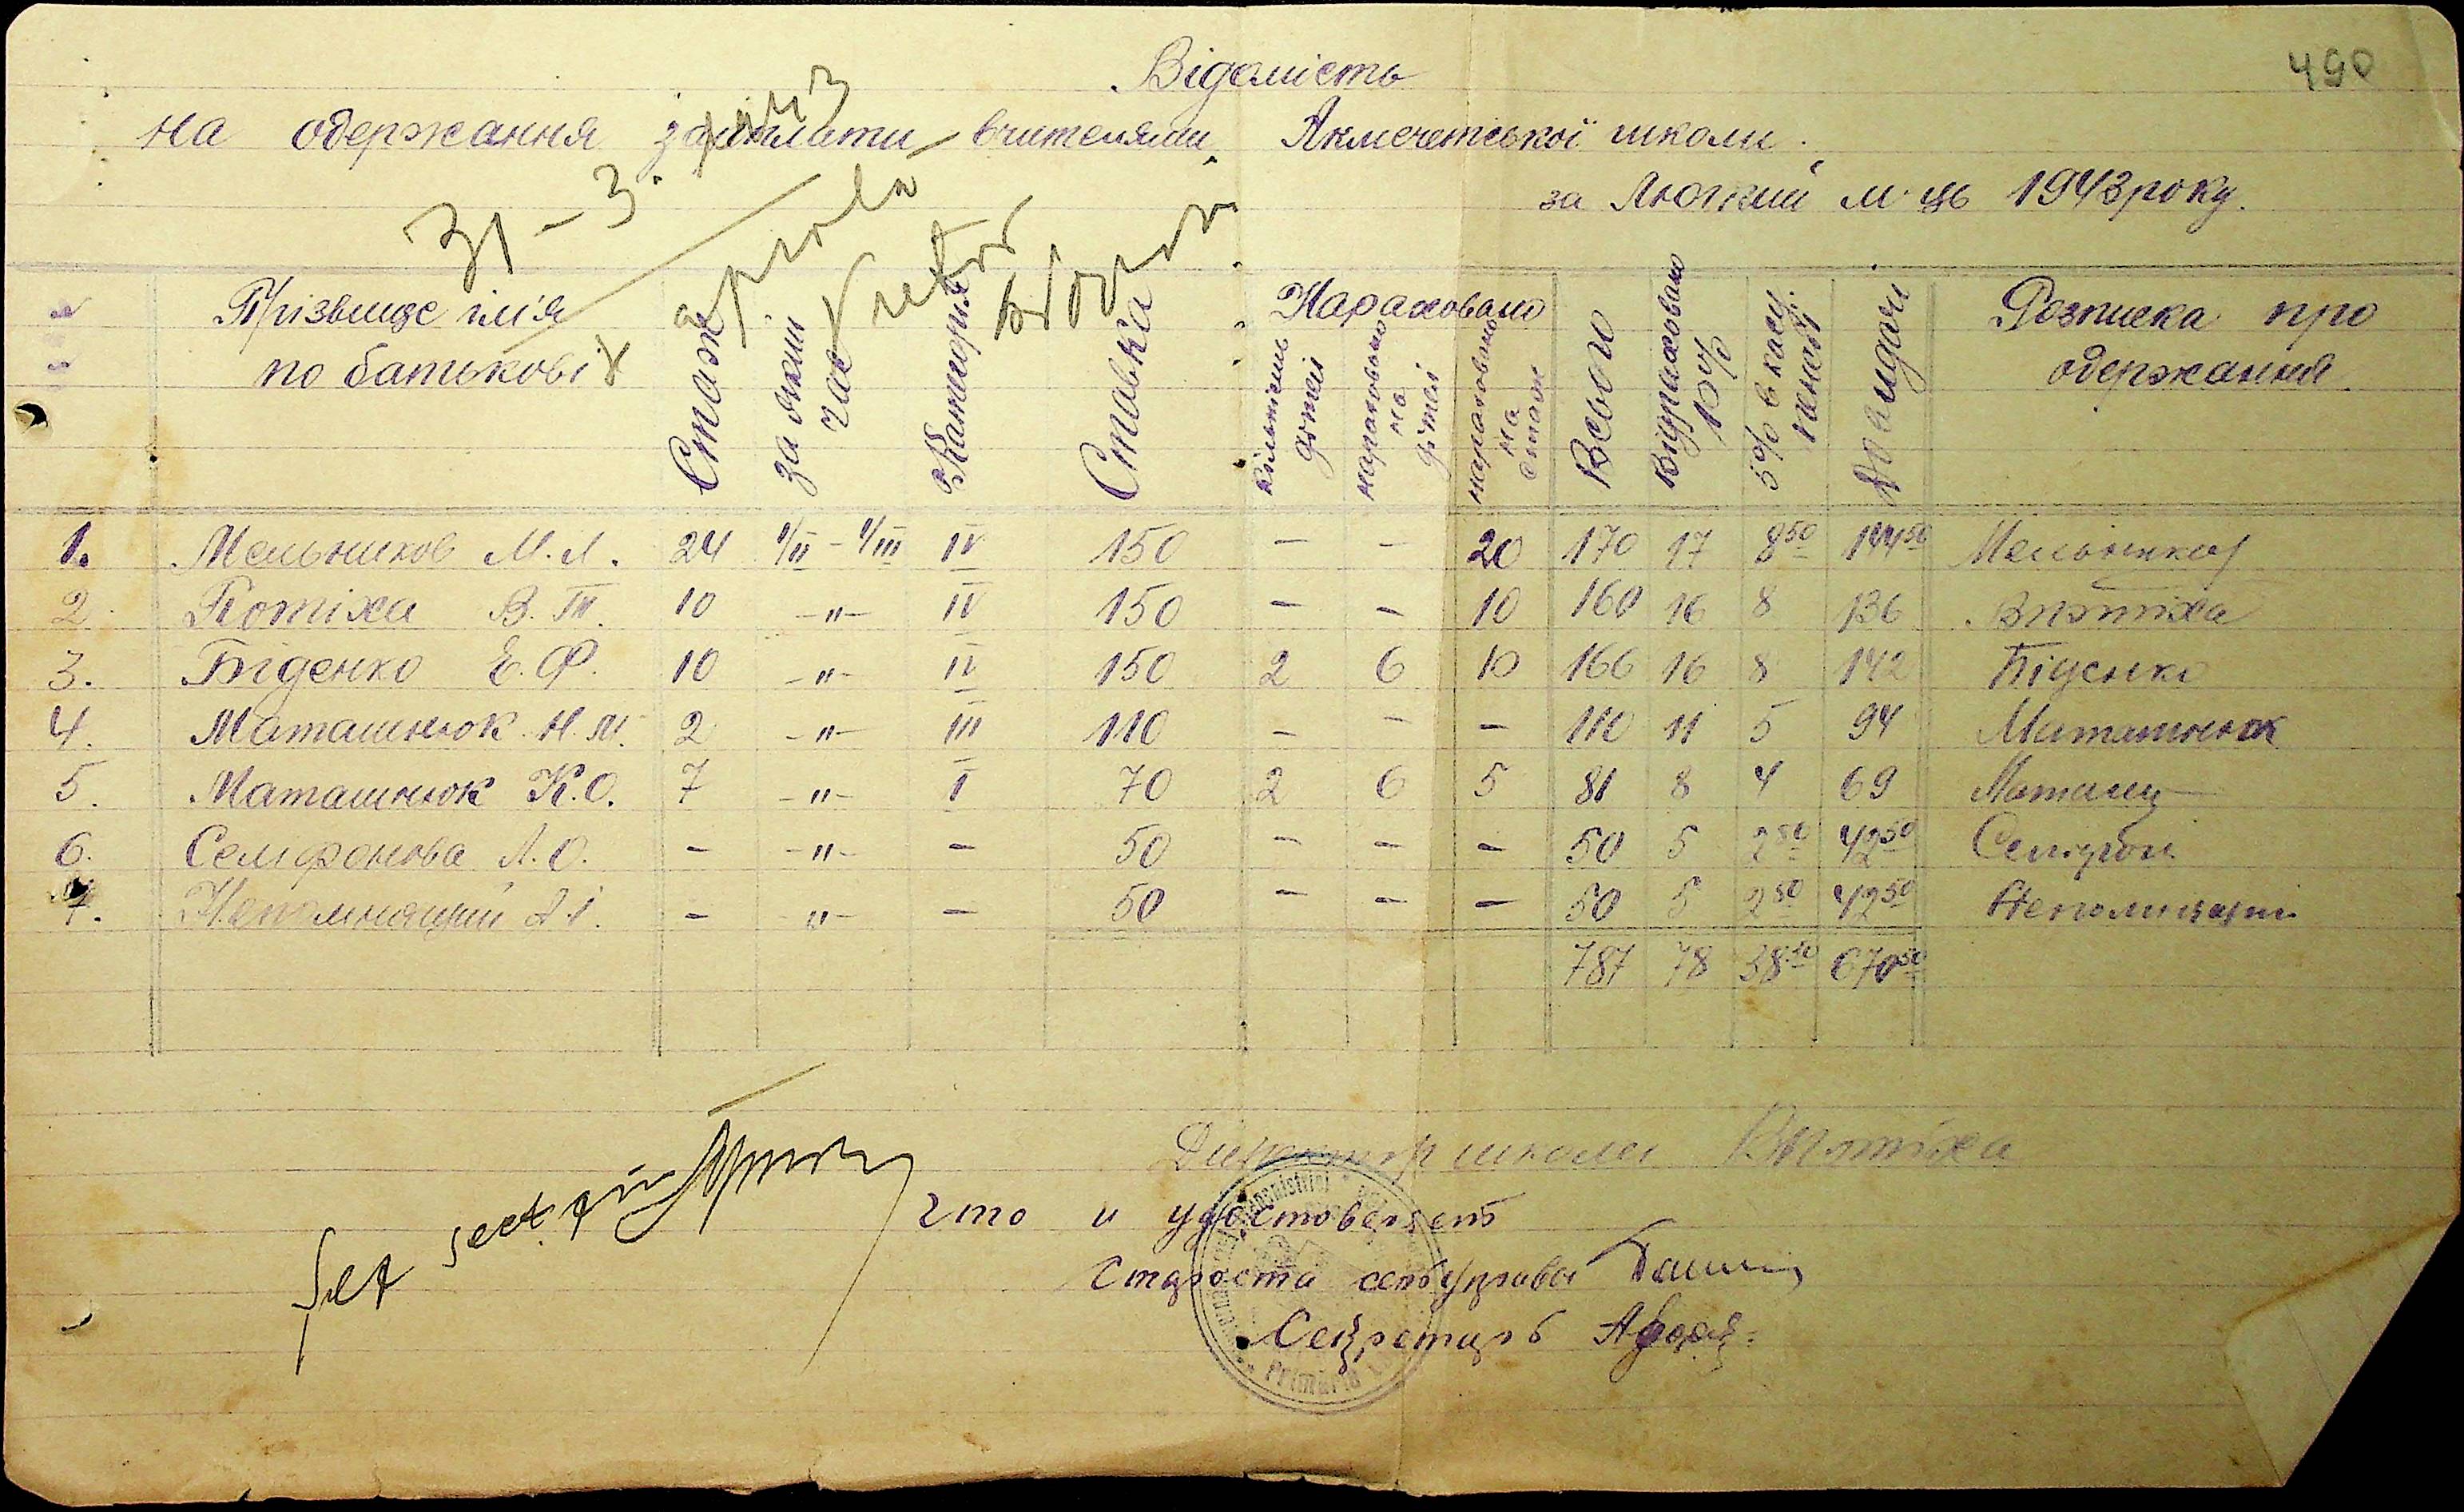 490
Відомість
на одержання зарплати вчителями Акмечетської школи
за Лютий м-ць 1943 року.
31-3
Прізвище ім'я по батькові Стаж за який час Категорія Ставка Нараховано кількість дітей нараховано на дітей нараховано на стаж Всього Відраховано 10% 5% в касу пенсій До видачі Розписка про одержання
1. Мельников М.Л. 24 1/II - 1/III IV 150 - - 20 170 17 8 50 144 50 Мельников
2. Потіха В.П. 10 -"- IV 150 - - 10 160 16 8 136 ВПотіха
3. Біденко Е.Ф. 10 -"- IV 150 2 6 10 166 16 8 142 Біденко
4. Маташнюк Н.М. 2 -"- III 110 - - - 110 11 5 94 Маташнюк
5. Маташнюк К.О. 7 -"- I 70 2 6 5 81 8 4 69 Маташ
6. Семфонова Л.О. - -"- - 50 - - - 50 5 2 50 42 50
7. Непомнящий А.І. - -"- - 50 - - - 50 5 2 50 42 50 Непомнящий
787 78 38 50 670 50
Директор школи ВПотіха
что и удостоверяет
Староста сельуправы
Секретарь
Șef sect.
Primăria